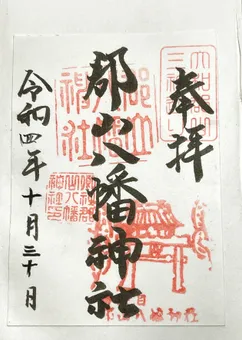 奉拝
郡山八幡神社
令和四年十月三十日
郡山八幡神社